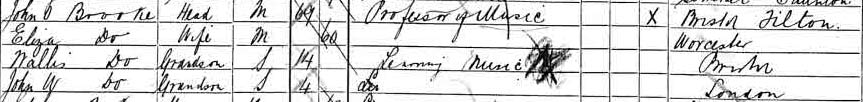 John Brooke Head M 69 Professor of Music X Bristol Tilton.
Eliza Do Wife M 60 Worcester
Wallis Do Grandson S 14 Learning Music Bristol
John W Do Grandson S 4 London